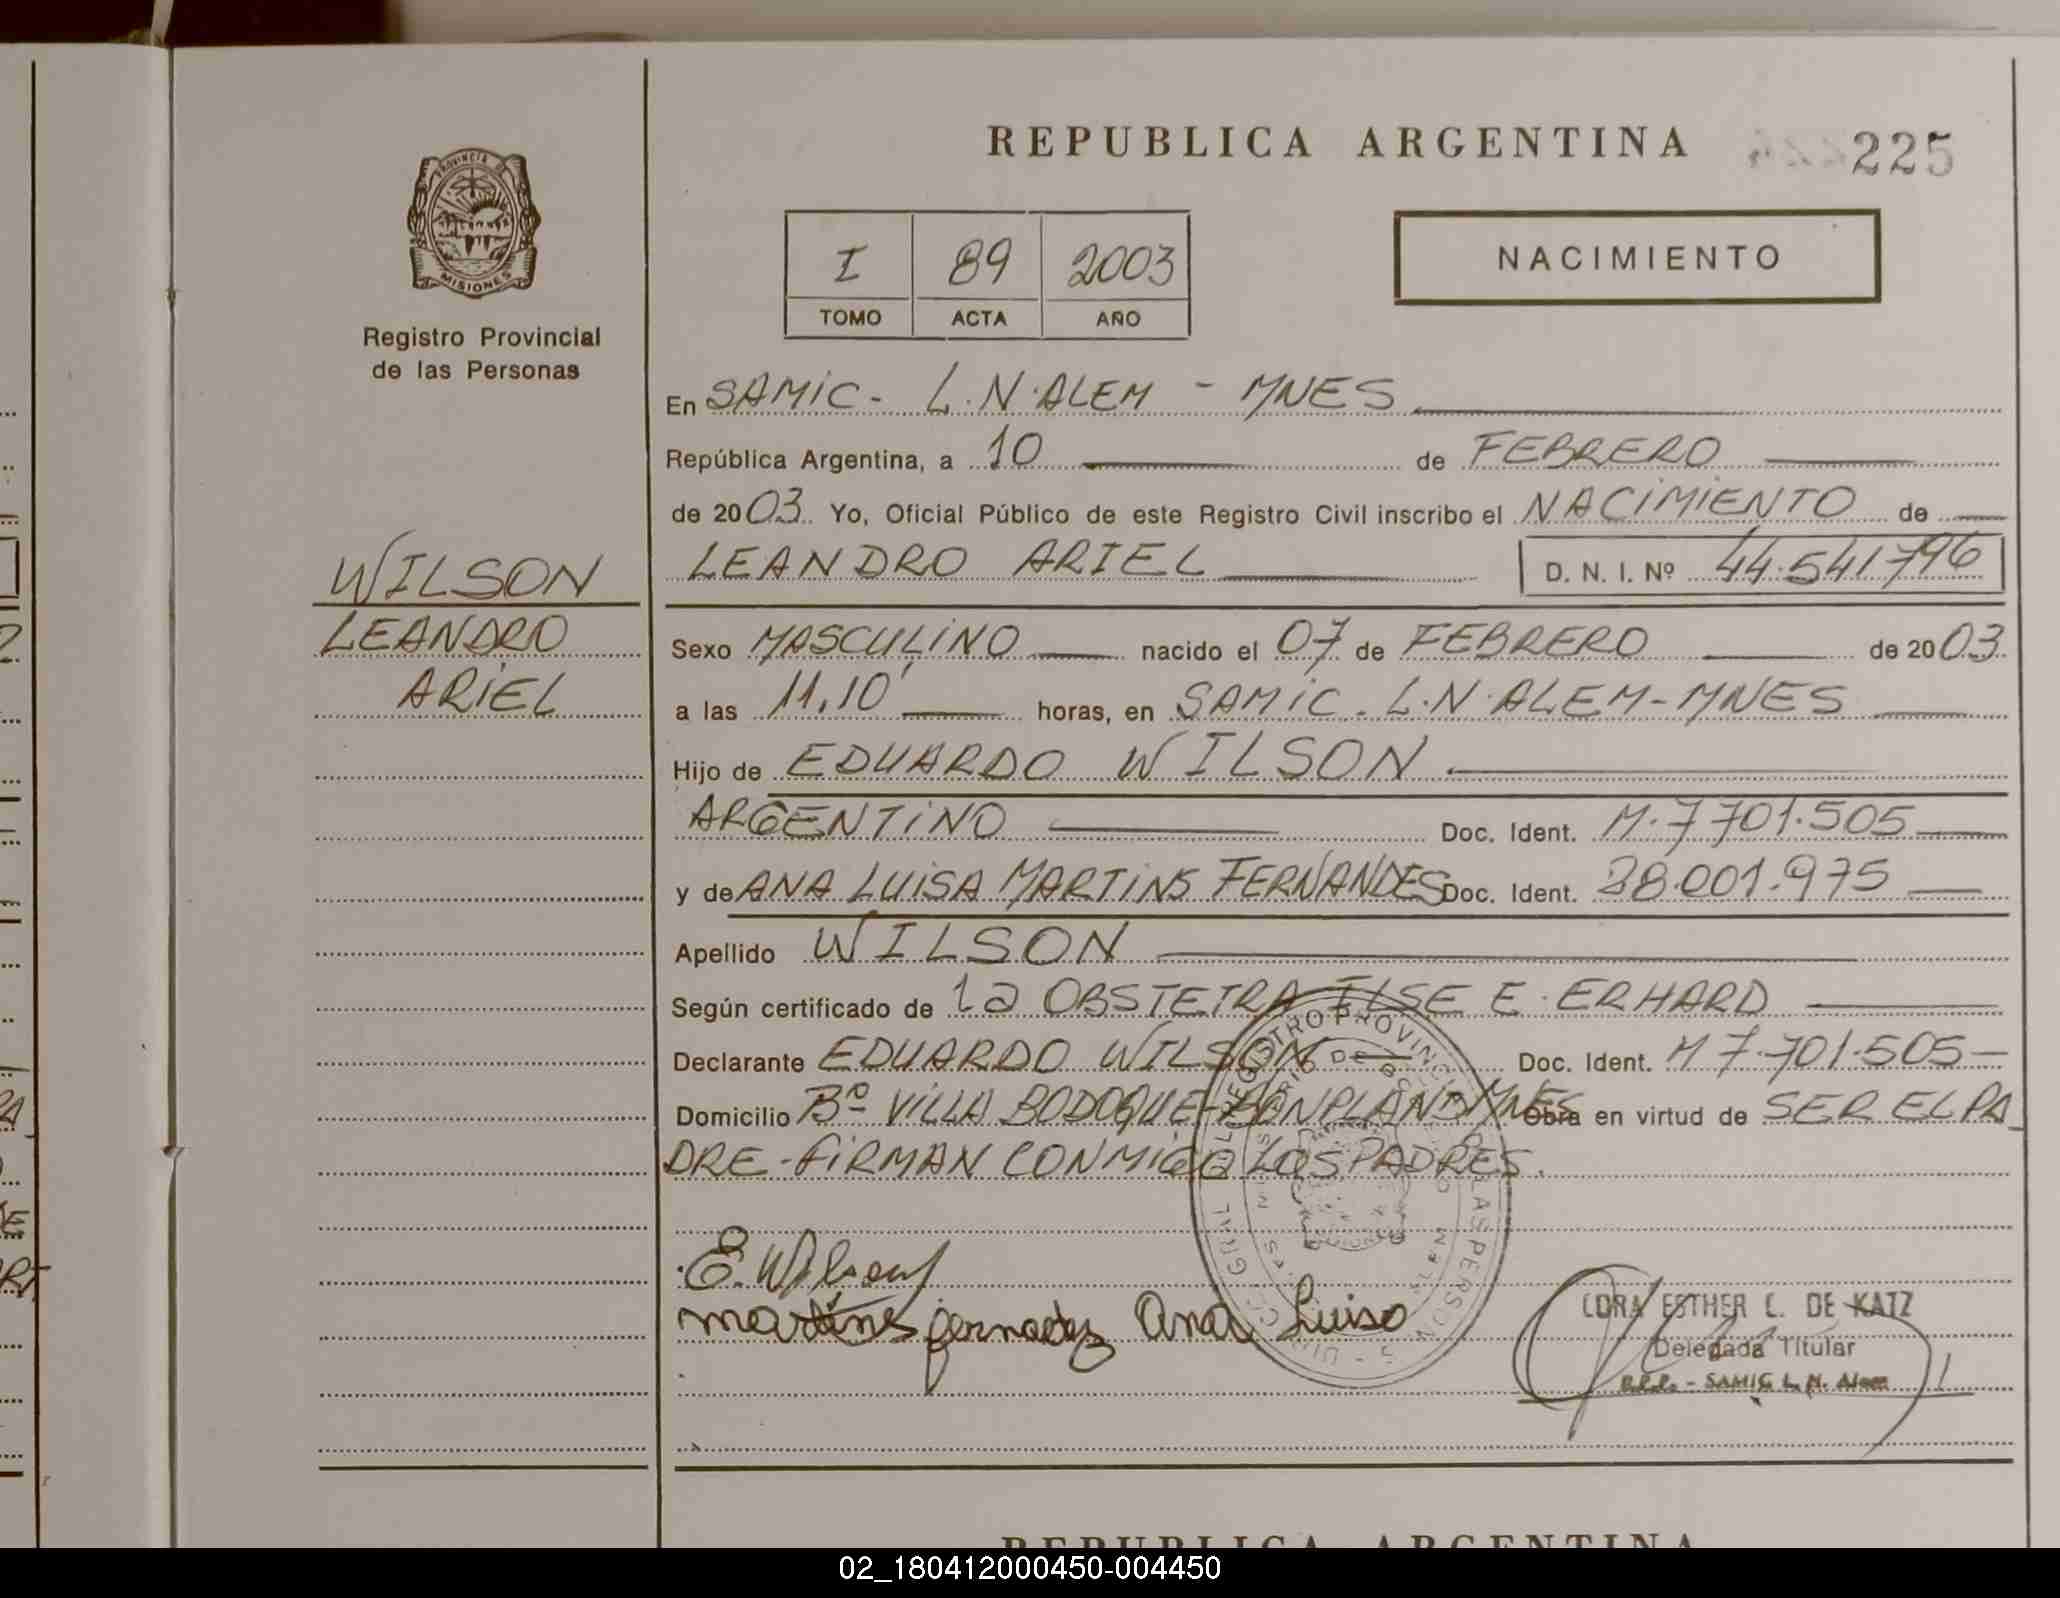 REPUBLICA ARGENTINA
225
PROVINCIA DE
MISIONES
Registro Provincial
de las Personas
I 89 2003
TOMO ACTA AÑO
NACIMIENTO
En SAMIC - L.N. ALEM - MNES
República Argentina, a 10 de FEBRERO
de 2003 Yo, Oficial Público de este Registro Civil inscribo el NACIMIENTO de
LEANDRO ARIEL D. N. I. Nº 44.541796
WILSON
LEANDRO
ARIEL
Sexo MASCULINO nacido el 07 de FEBRERO de 2003
a las 11.10' horas, en SAMIC - L.N. ALEM - MNES
Hijo de EDUARDO WILSON
ARGENTINO Doc. Ident. M. 7701.505
y de ANA LUISA MARTINS FERNANDES Doc. Ident. 38.001.975
Apellido WILSON
Según certificado de la OBSTETRA ILSE E. ERHARD
Declarante EDUARDO WILSON Doc. Ident. M 7.701.505
Domicilio Bº VILLA BODOQUE - BONPLAND MNES Obra en virtud de SER EL PA
DRE - FIRMAN CONMIGO LOS PADRES.
E. Wilson
martins fernadez Ana Luisa
CORA ESTHER C. DE KATZ
Delegada Titular
SAMIC L. N. Alem
REPUBLICA ARGENTINA
02_180412000450-004450